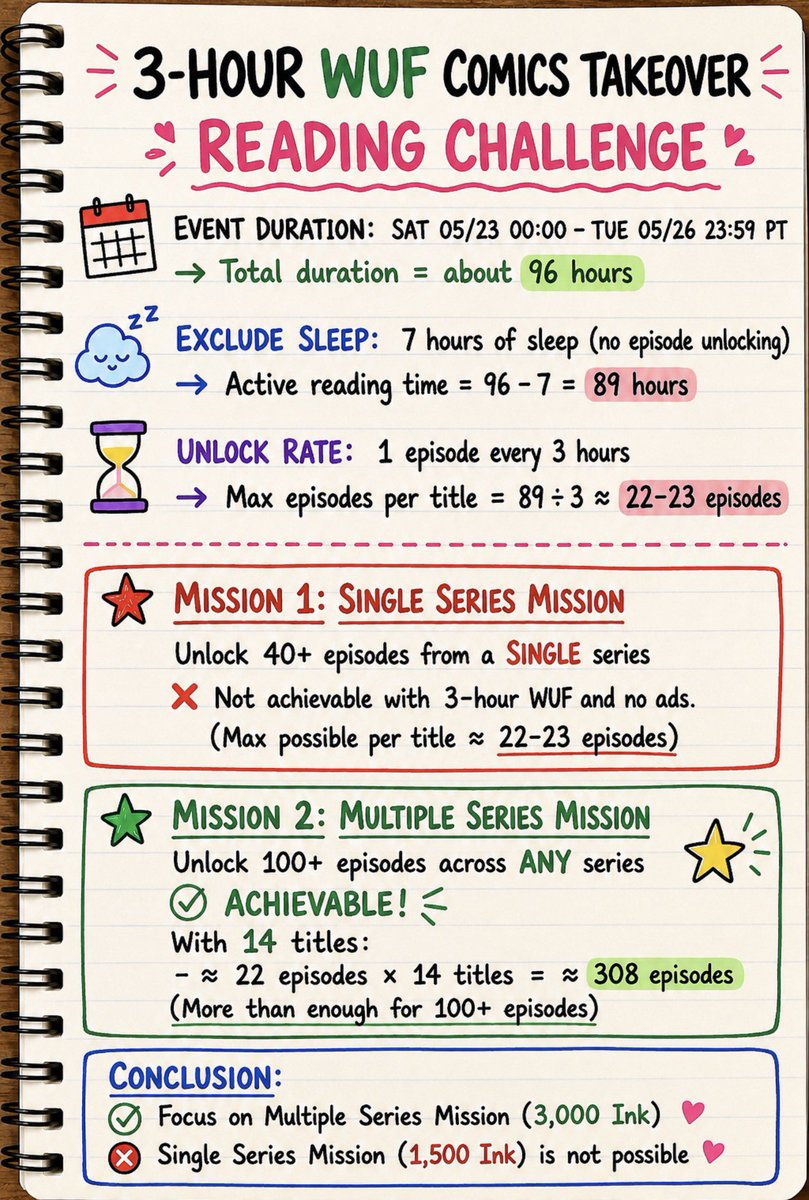 3-HOUR WUF COMICS TAKEOVER
READING CHALLENGE
EVENT DURATION: SAT 05/23 00:00 – TUE 05/26 23:59 PT
→ Total duration = about 96 hours
zzZ
EXCLUDE SLEEP: 7 hours of sleep (no episode unlocking)
→ Active reading time = 96 – 7 = 89 hours
UNLOCK RATE: 1 episode every 3 hours
→ Max episodes per title = 89 ÷ 3 ≈ 22–23 episodes
MISSION 1: SINGLE SERIES MISSION
Unlock 40+ episodes from a SINGLE series
❌ Not achievable with 3-hour WUF and no ads.
(Max possible per title ≈ 22–23 episodes)
MISSION 2: MULTIPLE SERIES MISSION
Unlock 100+ episodes across ANY series
ACHIEVABLE!
With 14 titles:
– ≈ 22 episodes × 14 titles = ≈ 308 episodes
(More than enough for 100+ episodes)
CONCLUSION:
Focus on Multiple Series Mission (3,000 Ink)
Single Series Mission (1,500 Ink) is not possible